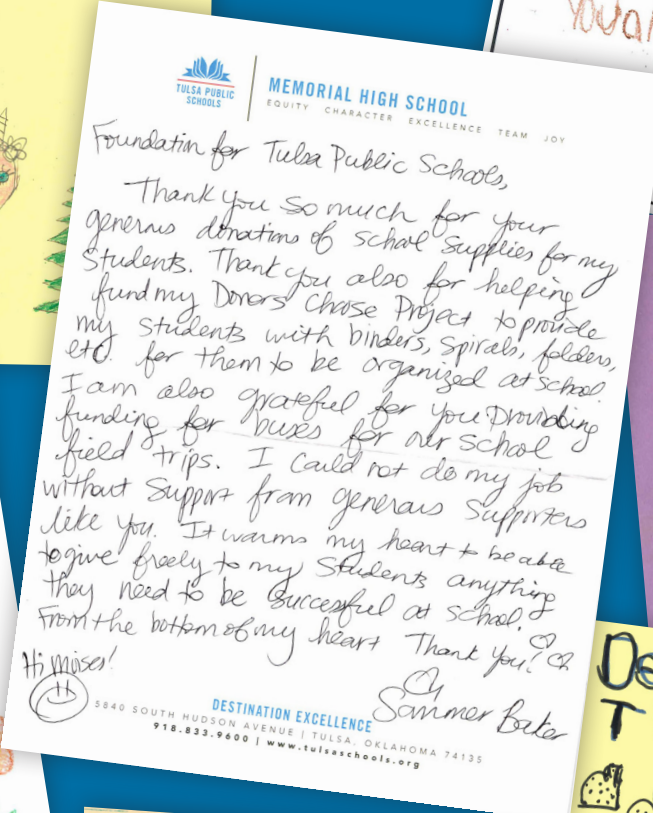 You a
TULSA PUBLIC
SCHOOLS
MEMORIAL HIGH SCHOOL
EQUITY CHARACTER EXCELLENCE TEAM JOY
Foundation for Tulsa Public Schools,
Thank you so much for your
generous donations of school supplies for my
students. Thank you also for helping
fund my Donors Choose Project to provide
my students with binders, spirals, folders,
etc. for them to be organized at school.
I am also grateful for you providing
funding for buses for our school
field trips. I could not do my job
without support from generous supporters
like you. It warms my heart to be able
to give freely to my students anything
they need to be succesful at school.
From the bottom of my heart Thank you!
Hi Moises!
Summer Baker
DESTINATION EXCELLENCE
5840 SOUTH HUDSON AVENUE | TULSA, OKLAHOMA 74135
918.833.9600 | www.tulsaschools.org
De
T